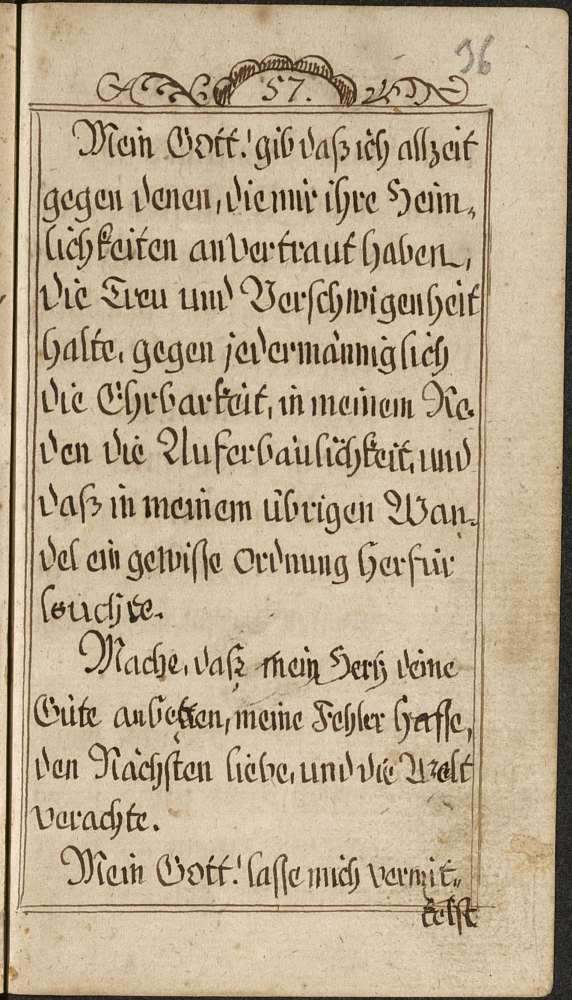 36
57.
Mein Gott! gib daß ich allzeit
gegen denen, die mir ihre Heim„
lichkeiten anvertraut haben,
die Treu und Verschwigenheit
halte, gegen jedermänniglich
die Ehrbarkeit, in meinem Re„
den die Auferbaulichkeit, und
daß in meinem übrigen Wan„
del ein gewisse Ordnung herfür
leuchte.
Mache, daß mein Hertz deine
Güte anbetten, meine Fehler hasse,
den Nächsten liebe, und die Welt
verachte.
Mein Gott! lasse mich vermit„
telst